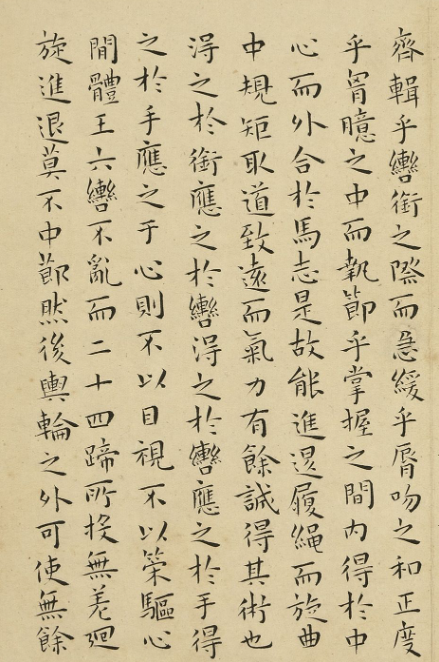 齊輯乎轡銜之際而急緩乎脣吻之和正度
乎胷臆之中而執節乎掌握之間内得於中
心而外合於馬志是故能進退履繩而旋曲
中規矩取道致遠而氣力有餘誠得其術也
得之於銜應之於轡得之於轡應之於手得
之於手應之于心則不以目視不以策驅心
間體王六轡不亂而二十四蹄所投無差廻
旋進退莫不中節然後輿輪之外可使無餘